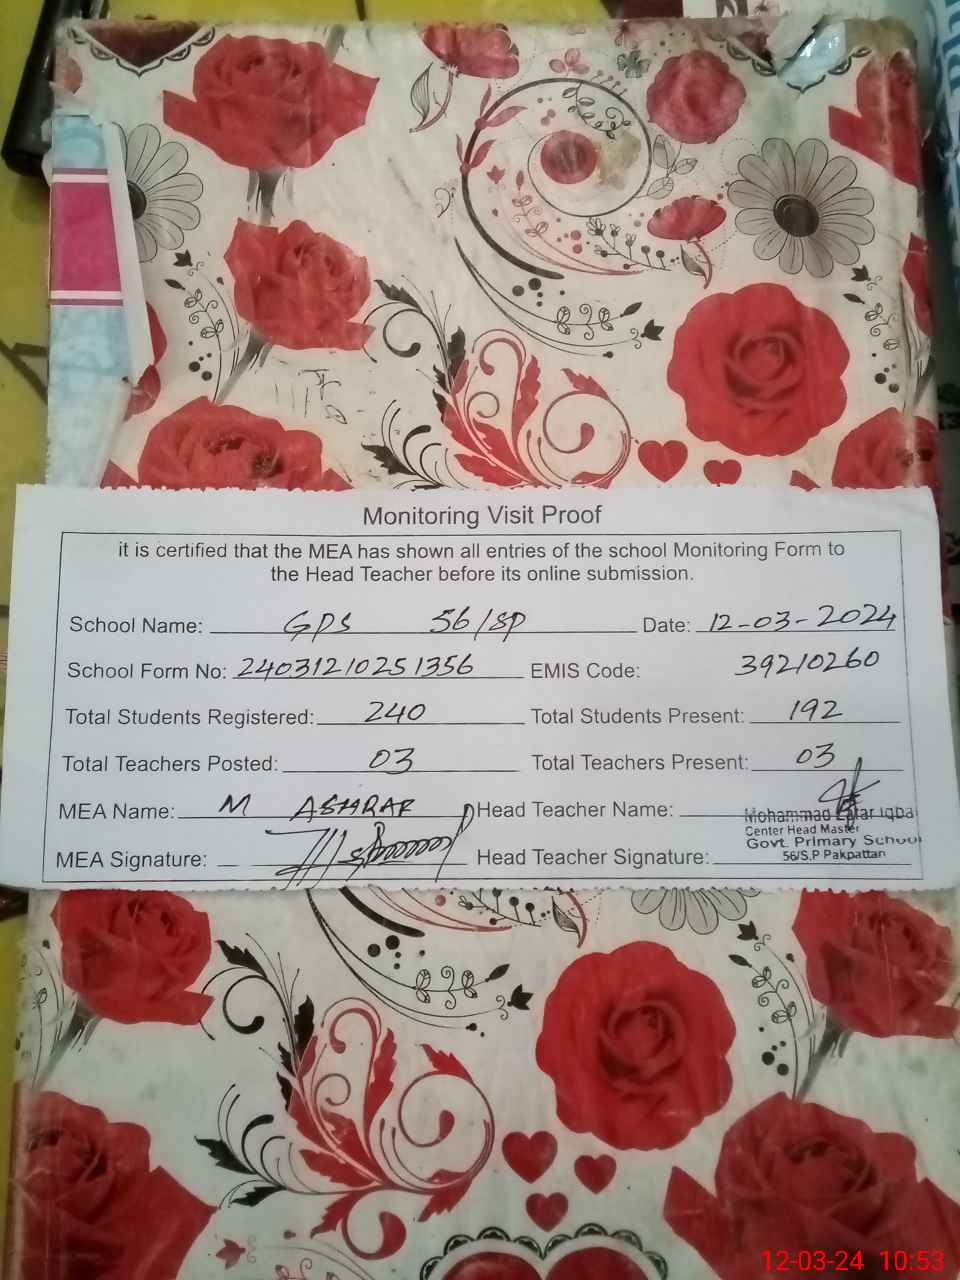 Monitoring Visit Proof
it is certified that the MEA has shown all entries of the school Monitoring Form to
the Head Teacher before its online submission.
School Name: GPS 56/SP Date: 12-03-2024
School Form No: 24031210251356 EMIS Code: 39210260
Total Students Registered: 240 Total Students Present: 192
Total Teachers Posted: 03 Total Teachers Present: 03
MEA Name: M ASHRAF Head Teacher Name:
Mohammad Zafar Iqbal
Center Head Master
Govt. Primary School
56/S.P Pakpattan
MEA Signature: Head Teacher Signature:
12-03-24 10:53